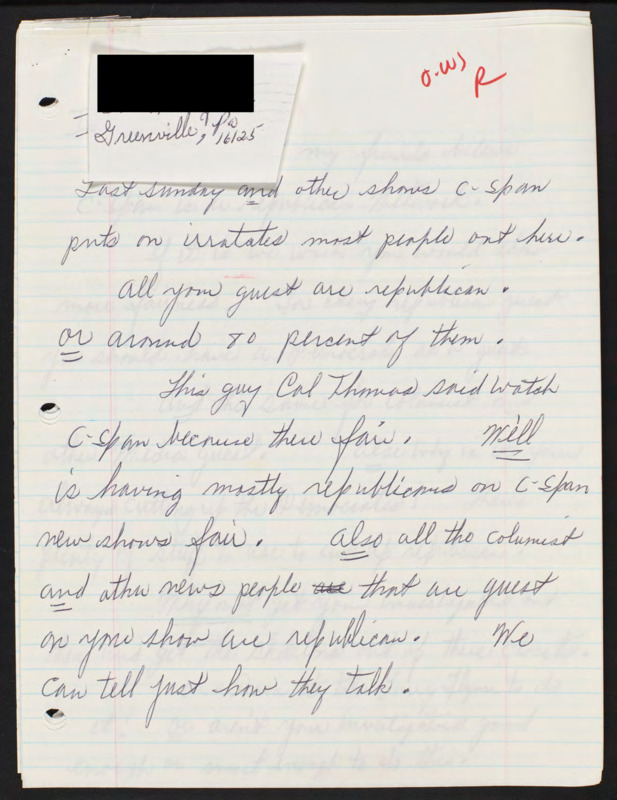 O.WS
R
Greenville, Pa
16125
Last Sunday and other shows C-Span
puts on irratates most people out here.
All your guest are republican.
or around 80 percent of them.
This guy Cal Thomas said watch
C-Span because there fair. Well
is having mostly republicans on C-Span
new shows fair. Also all the columist
and other news people are that are guest
on your show are republican. We
can tell just how they talk.